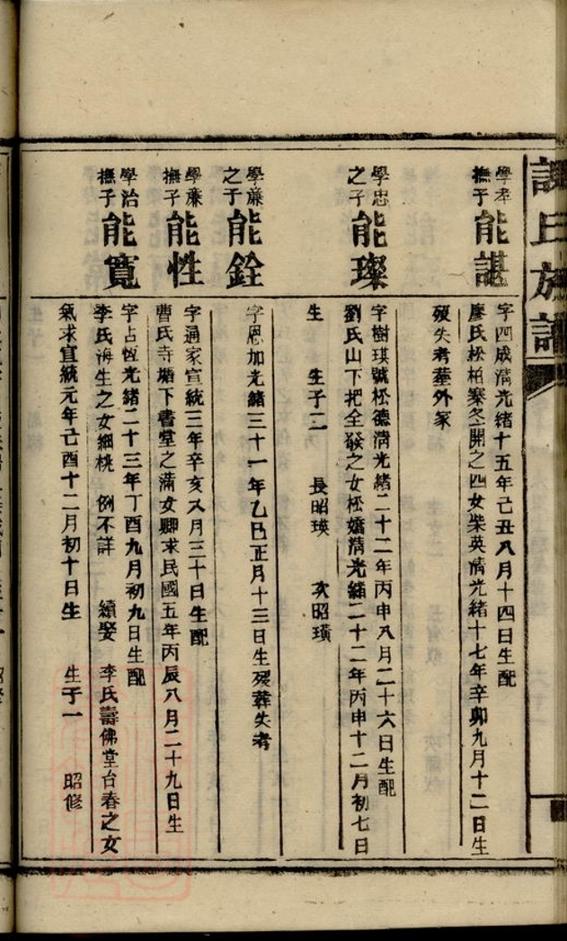 氏族譜
學孝
撫子
能諶
字四成清光緒十五年己丑八月十四日生配
廖氏松柏寨冬開之四女柴英清光緒十七年辛卯九月十二日生
歿失考塟外家
學忠
之子
能璨
字樹琪號松德清光緒二十二年丙申八月二十六日生配
劉氏山下把全發之女松嬌清光緒二十二年丙申十二月初七日
生　生子二　長昭瑛　次昭璜
學蔗
之子
能銓
字恩加光緒三十一年乙巳正月十三日生歿葬失考
學蔗
撫子
能性
字通家宣統三年辛亥八月三十日生配
曹氏寺塘下書堂之滿女卿求民國五年丙辰八月二十九日生
學治
撫子
能寬
字占恆光緒二十三年丁酉九月初九日生配
李氏海生之女細桃　例不詳　續娶　李氏壽佛堂台春之女
氣求宣統元年己酉十二月初十日生　生子一　昭修